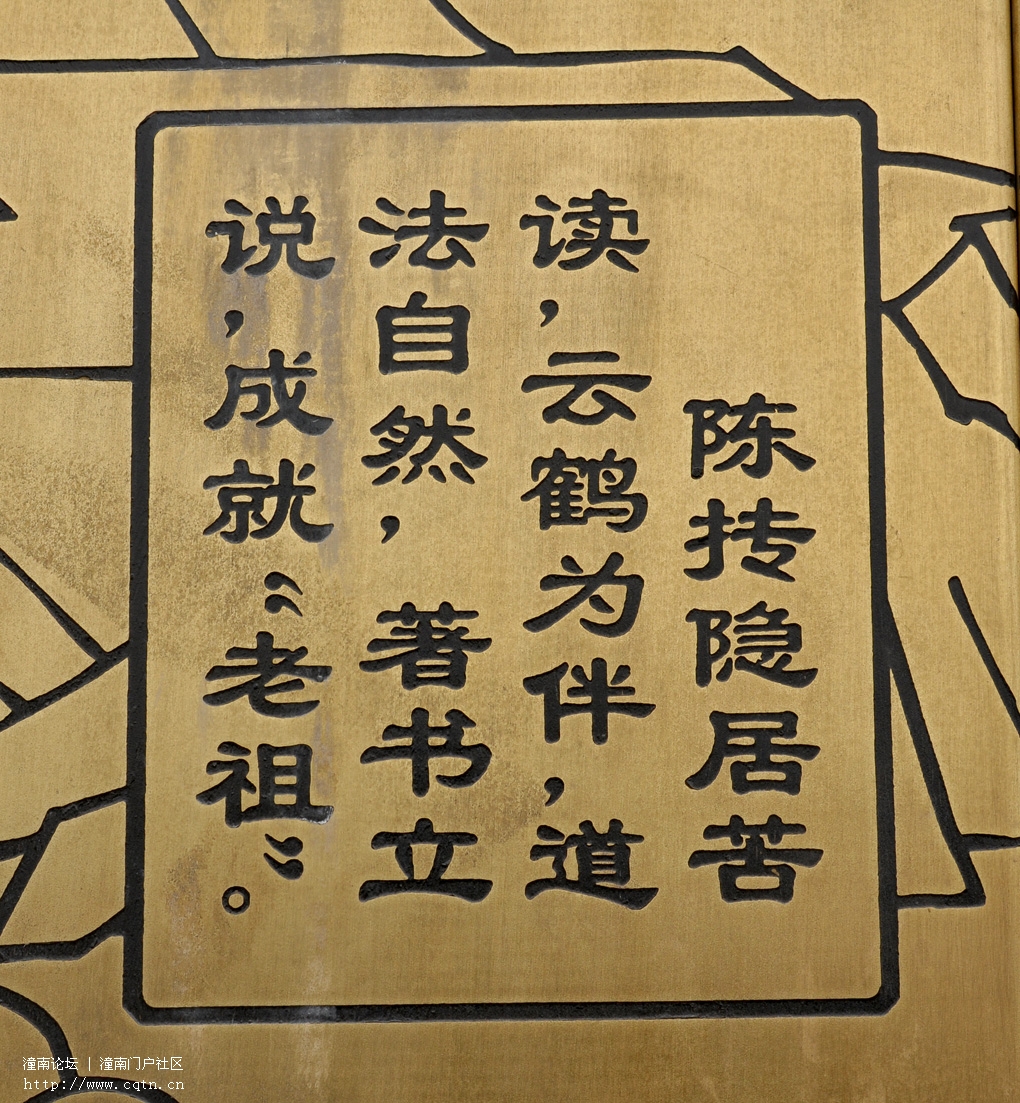 陈抟隐居苦
读，云鹤为伴，道
法自然，著书立
说，成就“老祖”。
潼南论坛 | 潼南门户社区
http://www.cqtn.cn